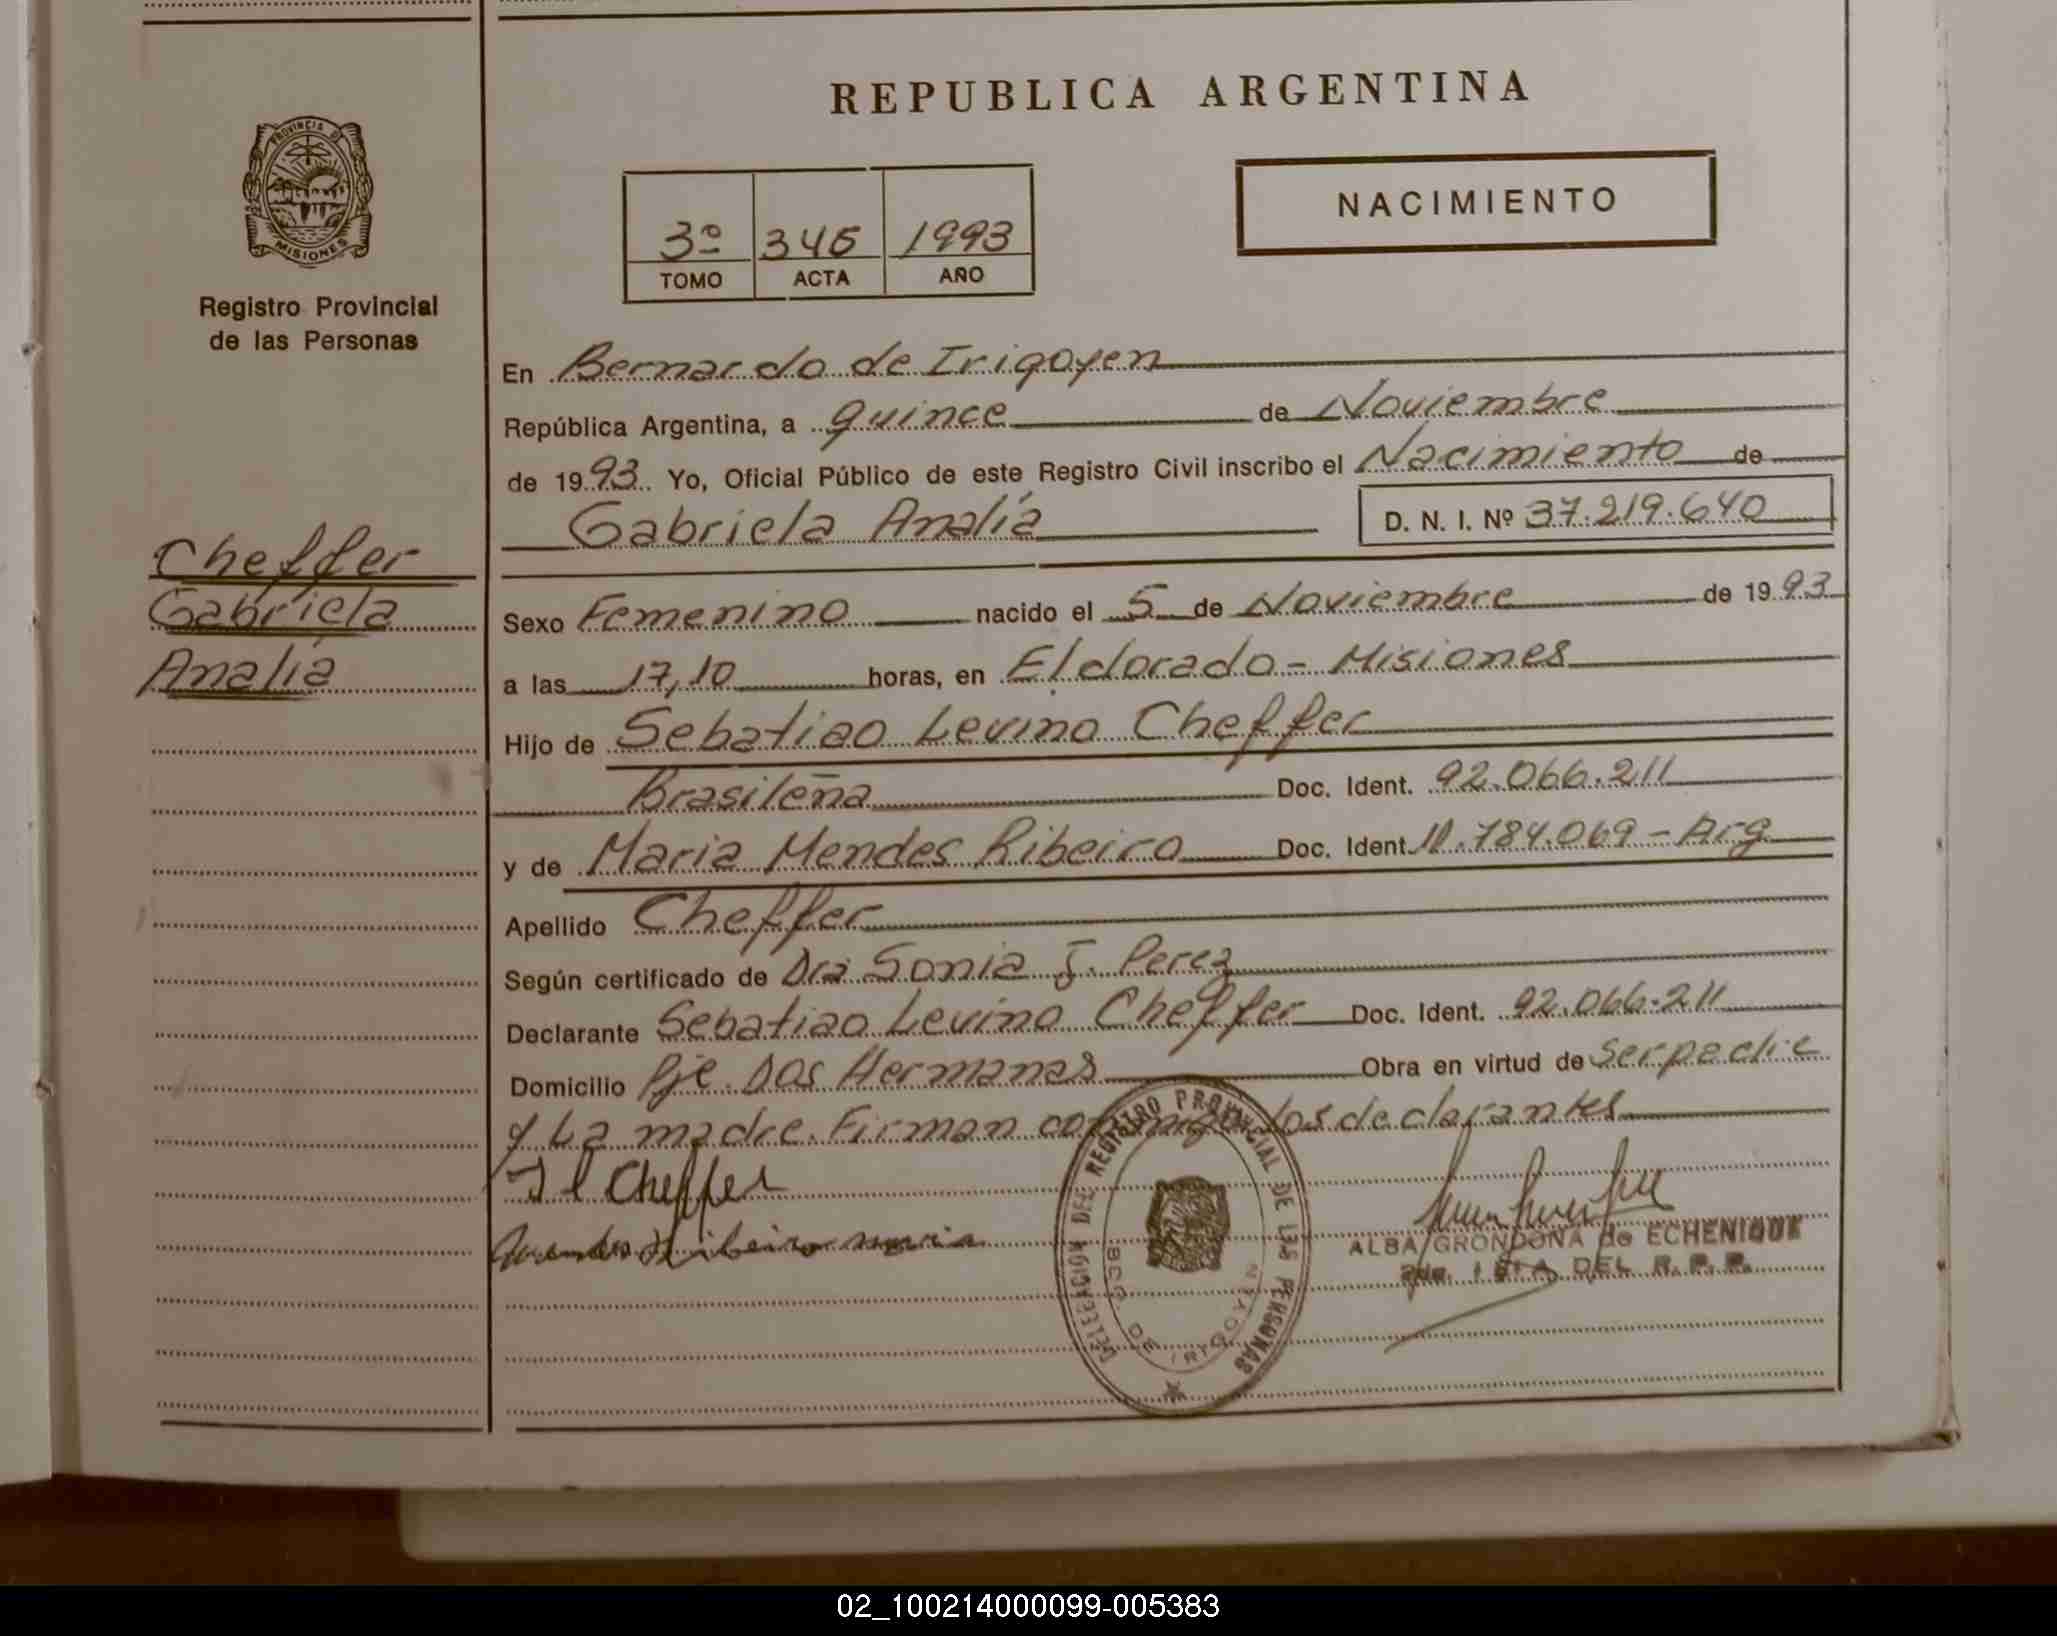 REPUBLICA ARGENTINA
PROVINCIA DE
MISIONES
Registro Provincial
de las Personas
3º 345 1993
TOMO ACTA AÑO
NACIMIENTO
En Bernardo de Irigoyen
República Argentina, a quince de Noviembre
de 1993. Yo, Oficial Público de este Registro Civil inscribo el Nacimiento de
Gabriela Analía D. N. I. Nº 37.219.640
Cheffer
Gabriela
Analía
Sexo Femenino nacido el 5 de Noviembre de 1993
a las 17,10 horas, en Eldorado - Misiones
Hijo de Sebatiao Levino Cheffer
Brasileña Doc. Ident. 92.066.211
y de Maria Mendes Ribeiro Doc. Ident 11.784.069 - Arg
Apellido Cheffer
Según certificado de Dra Sonia J. Perez
Declarante Sebatiao Levino Cheffer Doc. Ident. 92.066.211
Domicilio Pje. Dos Hermanas Obra en virtud de Ser padre
y La madre. Firman conmigo los declarantes
Cheffer
Ribeiro maria
DELEGACION DEL REGISTRO PROVINCIAL DE LAS PERSONAS
BDO. DE IRIGOYEN
ALBA GRONDONA de ECHENIQUE
DEL R. P. P.
02_100214000099-005383